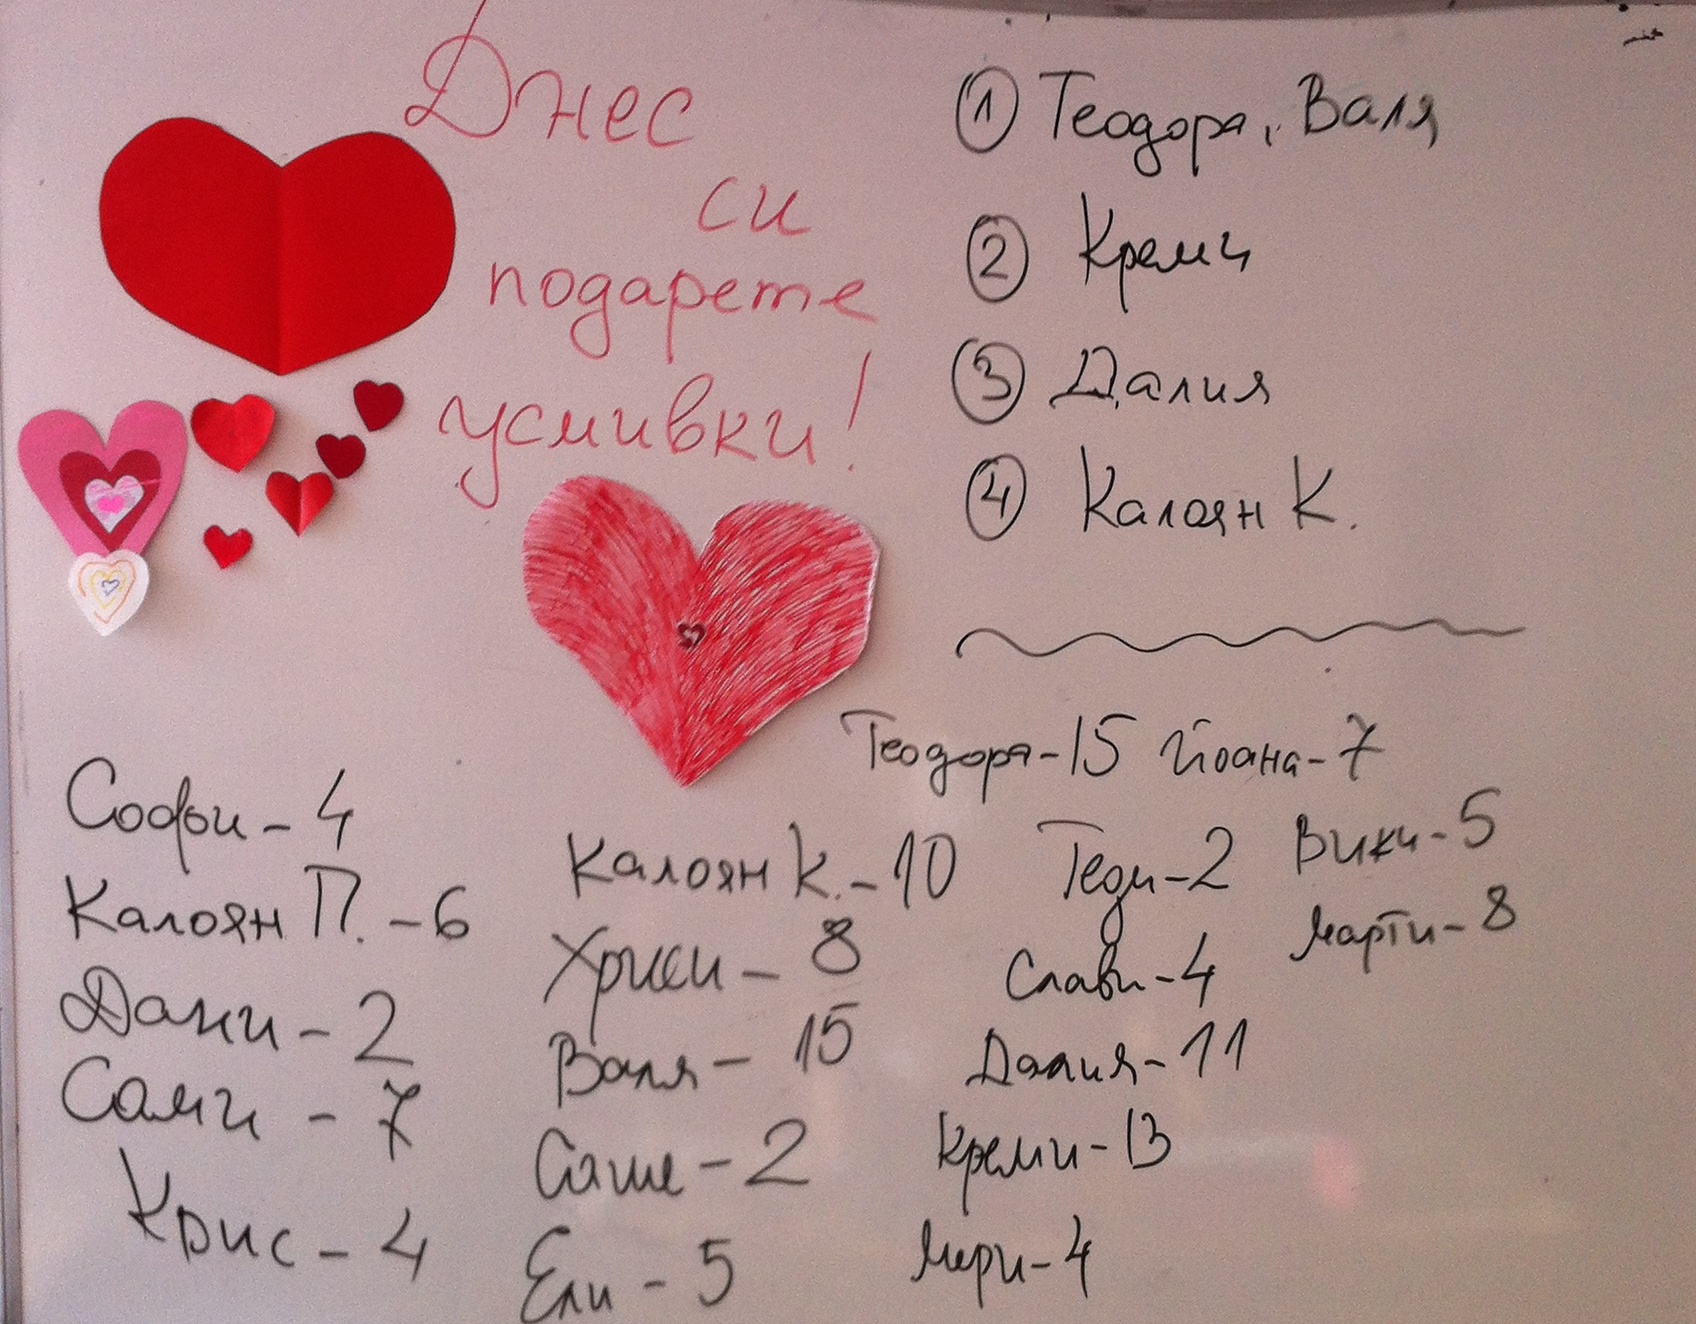 Днес
си
подарете
усмивки!
1 Теодора, Валя
2 Креми
3 Далия
4 Калоян К.
Софи - 4
Калоян П. - 6
Дани - 2
Сами - 7
Крис - 4
Калоян К. - 10
Хриси - 8
Валя - 15
Саше - 2
Ели - 5
Теодора - 15 Йоана - 7
Теди - 2
Слави - 4
Далия - 11
Креми - 13
Мери - 4
Вики - 5
Марти - 8